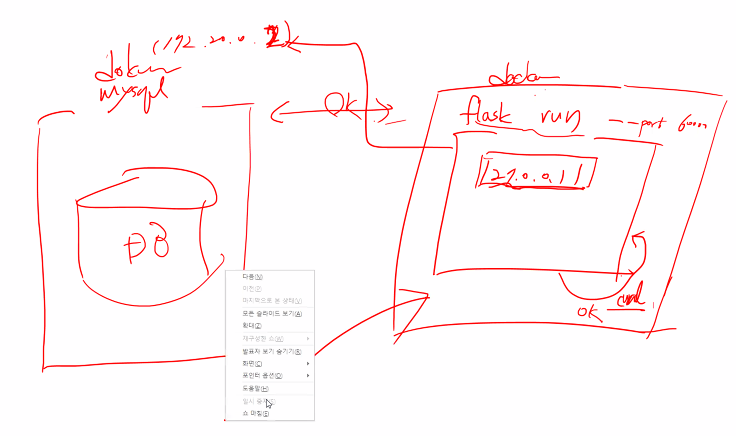 (192.20.0.2)
docker
mysql
OK
DB
docker
flask run --port 6000
127.0.0.1
OK curl
다음(N)
이전(P)
마지막으로 본 상태(V)
모든 슬라이드 보기(A)
확대(Z)
재구성한 쇼(W)
발표자 보기 숨기기(R)
화면(C)
포인터 옵션(O)
도움말(H)
일시 중지(S)
쇼 마침(E)